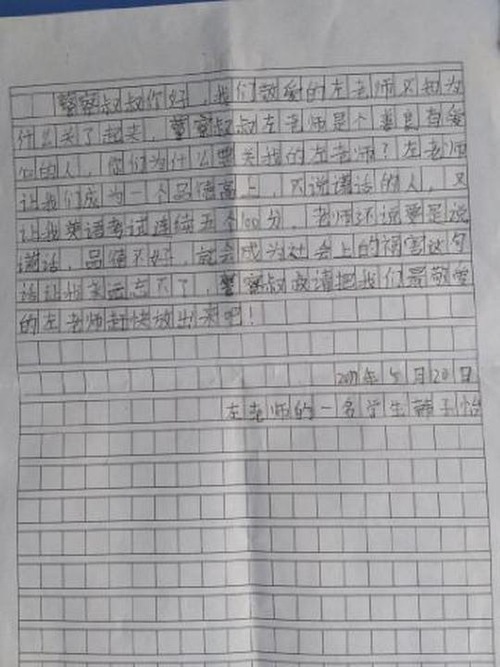 警察叔叔你好，我们敬爱的左老师不知为
什么关了起来，警察叔叔左老师是个善良有爱
心的人，你们为什么要关我的左老师？左老师
让我们成为一个品德高上，不说谎话的人，又
让我英语考试连续五个100分。老师还说要是说
谎话，品德不好，就会成为社会上的祸害这句
话让我永远忘不了，警察叔叔请把我们最敬爱
的左老师赶快放出来吧！
年5月20日
左老师的一名学生韩子怡